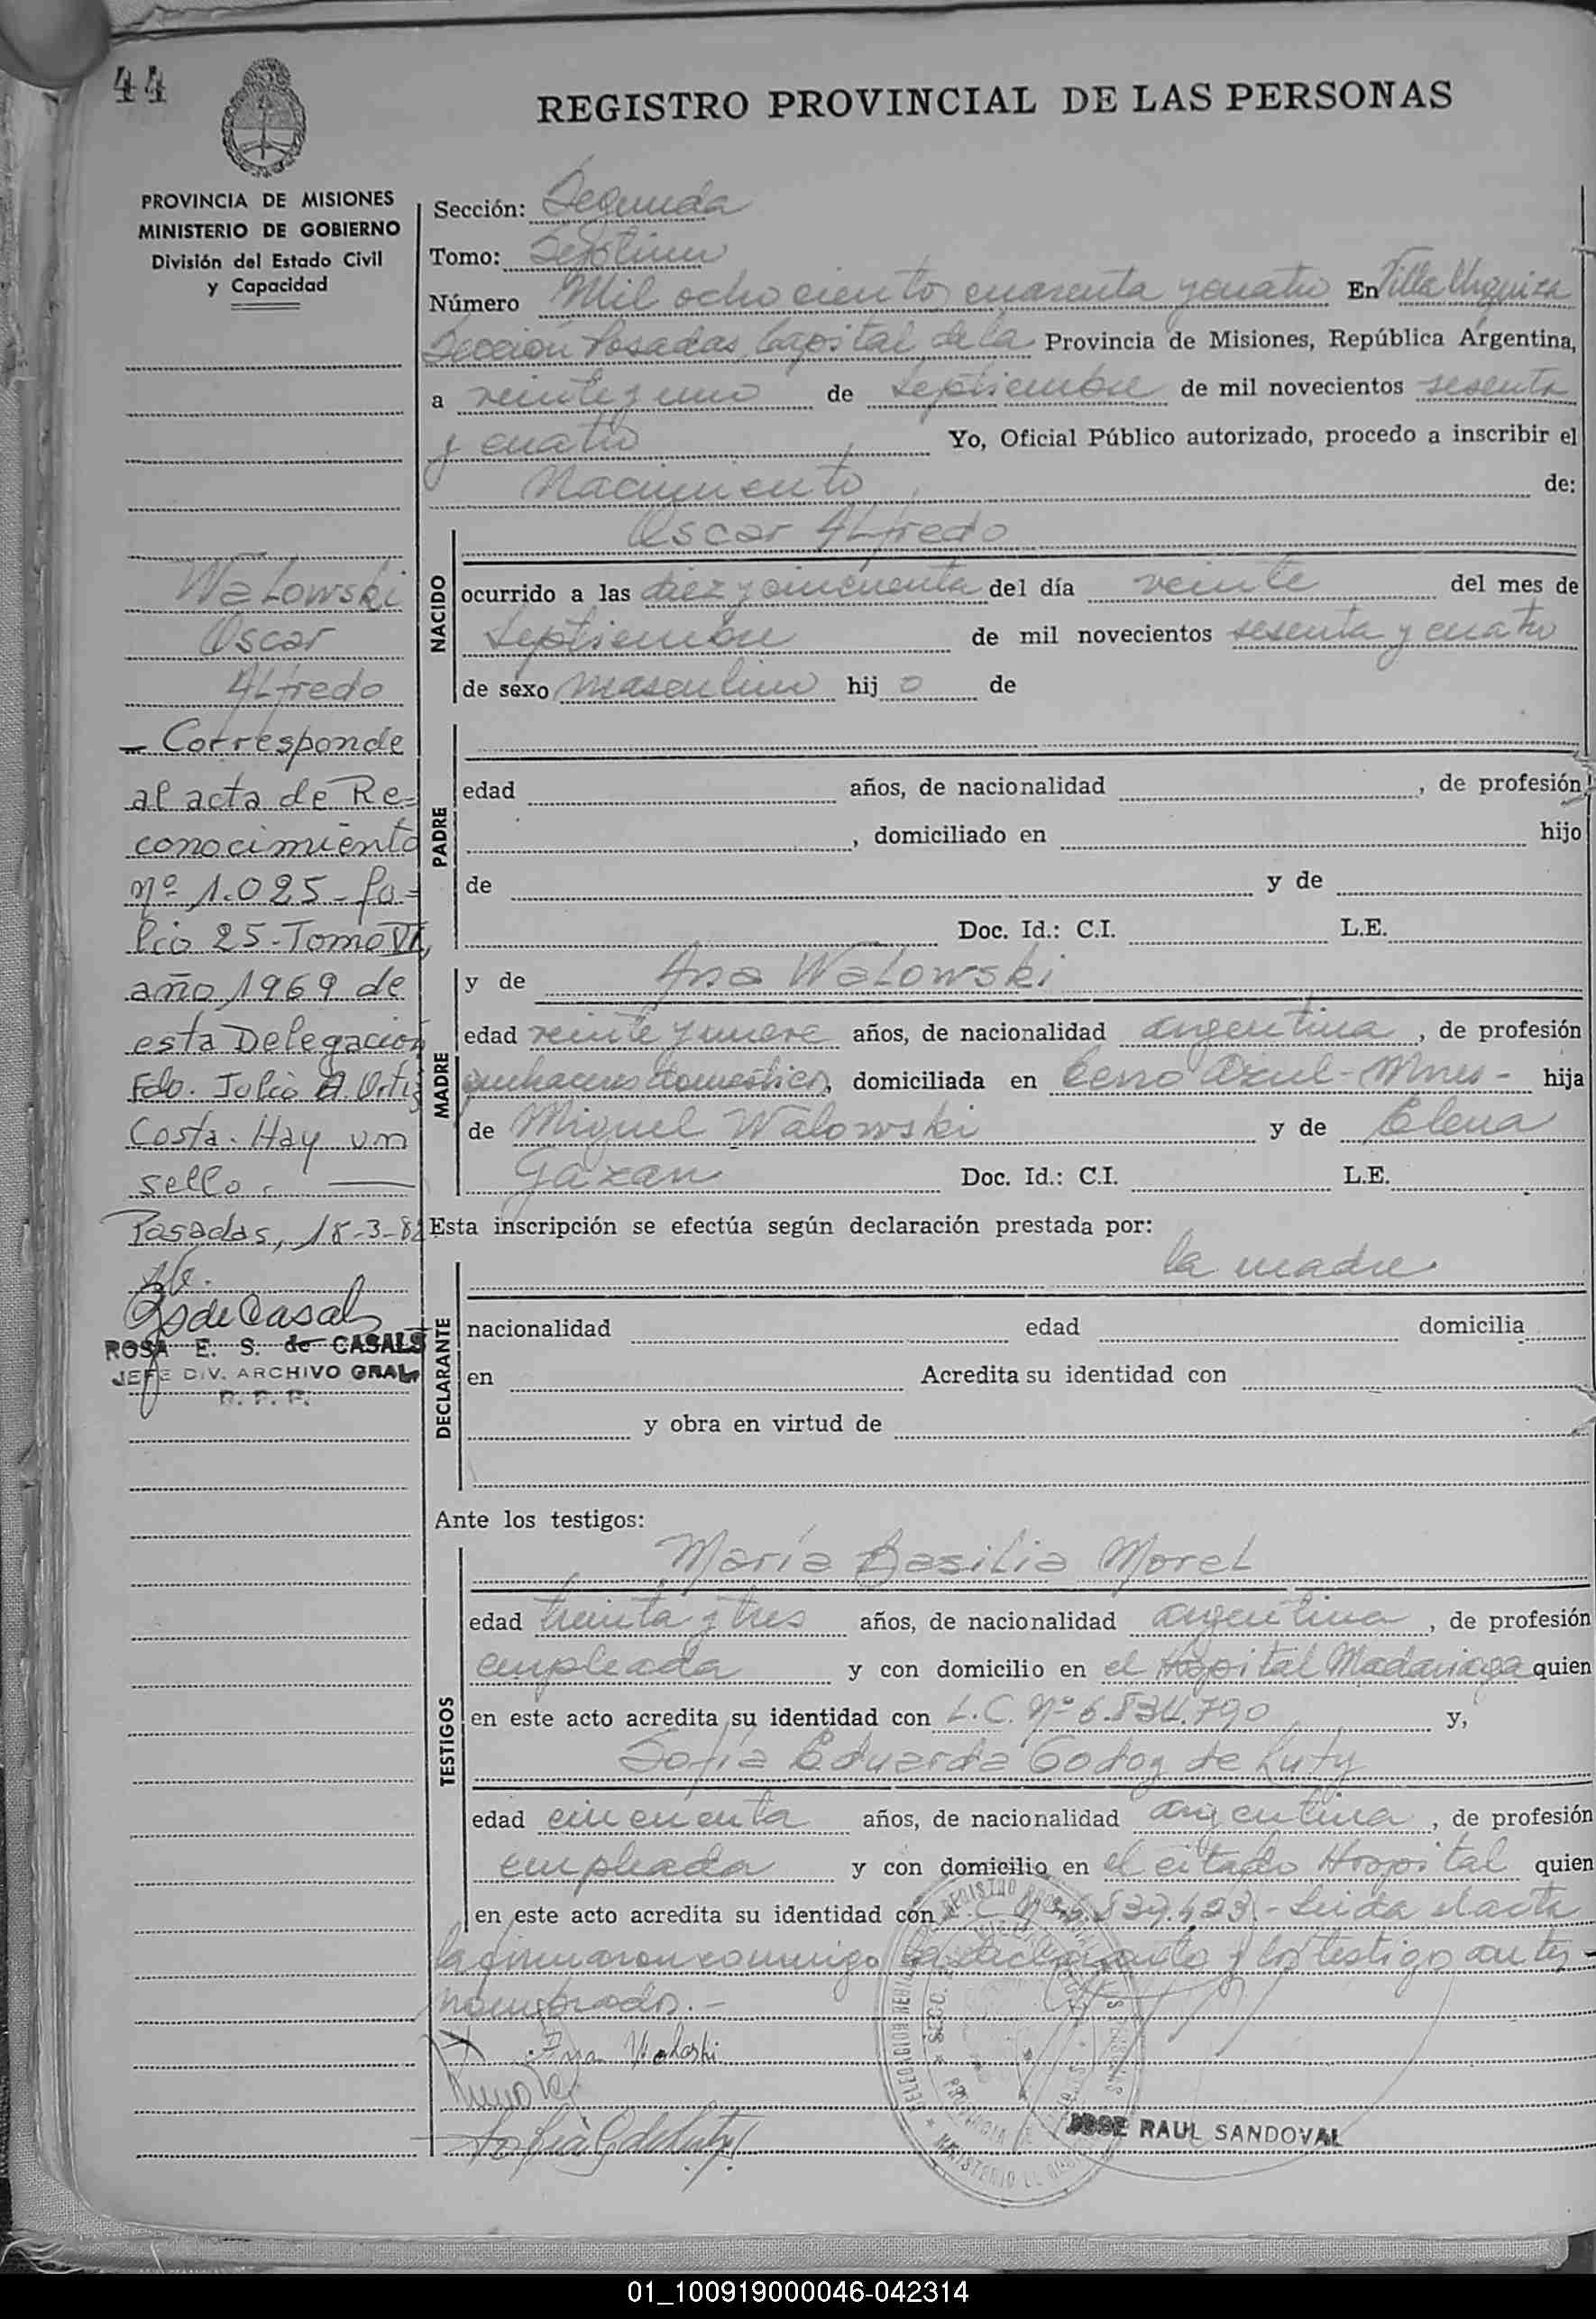 44
REGISTRO PROVINCIAL DE LAS PERSONAS
PROVINCIA DE MISIONES
MINISTERIO DE GOBIERNO
División del Estado Civil
y Capacidad
Sección: Segunda
Tomo: Septimo
Número Mil ochocientos cuarenta y cuatro En Villa Urquiza
Sección Posadas Capital de la Provincia de Misiones, República Argentina,
a veinte y uno de septiembre de mil novecientos sesenta
y cuatro Yo, Oficial Público autorizado, procedo a inscribir el
Nacimiento de:
NACIDO
Oscar Alfredo
ocurrido a las diez y cincuenta del día veinte del mes de
septiembre de mil novecientos sesenta y cuatro
de sexo masculino hijo de
Walowski
Oscar
Alfredo
- Corresponde
al acta de Re=
conocimiento
nº 1.025 - fo=
lio 25 - Tomo VI,
año 1969 de
esta Delegación
Fdo. Julio A. Ortiz
Costa. Hay un
sello.
Posadas, 18-3-82
ROSA E. S. de CASALS
JEFE DIV. ARCHIVO GRAL.
R. P. P.
PADRE
edad años, de nacionalidad , de profesión
, domiciliado en hijo
de y de
Doc. Id.: C.I. L.E.
MADRE
y de Ana Walowski
edad veinte y nueve años, de nacionalidad argentina, de profesión
quehaceres domesticos, domiciliada en Cerro Azul - Mnes - hija
de Miguel Walowski y de Elena
Gazan Doc. Id.: C.I. L.E.
Esta inscripción se efectúa según declaración prestada por:
DECLARANTE
la madre.
nacionalidad edad domicilia
en Acredita su identidad con
y obra en virtud de
Ante los testigos:
TESTIGOS
María Basilia Morel
edad treinta y tres años, de nacionalidad argentina, de profesión
empleada y con domicilio en el Hospital Madariaga quien
en este acto acredita su identidad con L.C. Nº 6.834.790 y,
Sofía Eduarda Godoy de Luty
edad cincuenta años, de nacionalidad argentina, de profesión
empleada y con domicilio en el citado Hospital quien
en este acto acredita su identidad con L.C. Nº - Leida el acta
la firmaron conmigo la declarante y los testigos antes
nombrados. -
JOSE RAUL SANDOVAL
01_100919000046-042314